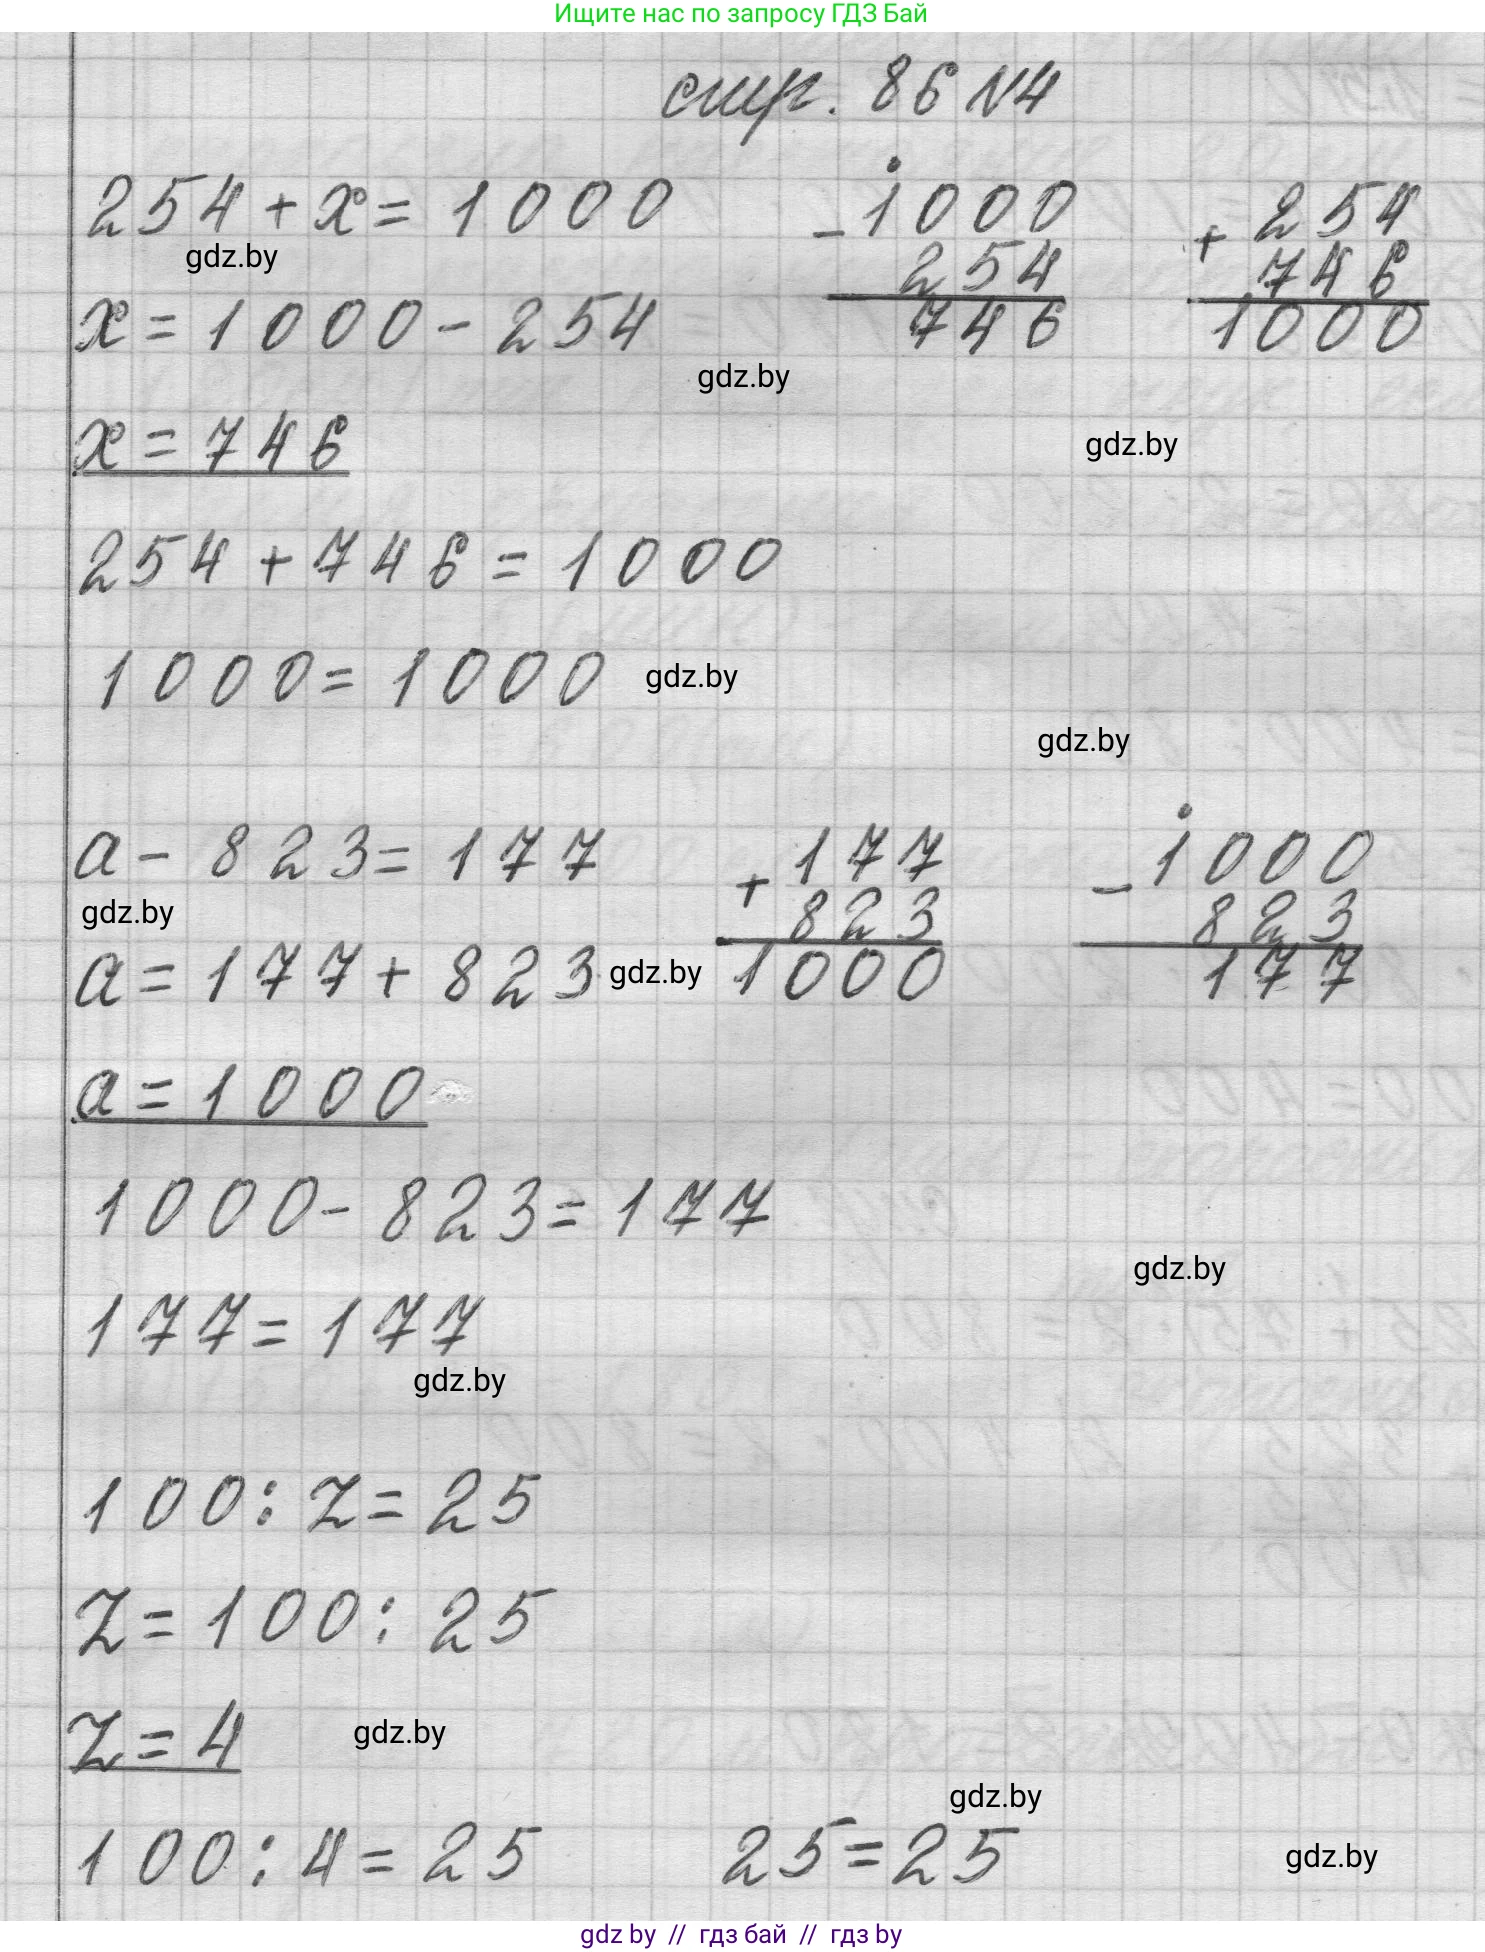 Ищите нас по запросу ГДЗ Бай
стр. 86 №4
254 + x = 1000
- 1000
254
746
+ 254
746
1000
gdz.by
x = 1000 - 254
gdz.by
x = 746
gdz.by
254 + 746 = 1000
1000 = 1000
gdz.by
gdz.by
a - 823 = 177
+ 177
823
1000
- 1000
823
177
gdz.by
a = 177 + 823
gdz.by
a = 1000
1000 - 823 = 177
gdz.by
177 = 177
gdz.by
100 : z = 25
z = 100 : 25
z = 4
gdz.by
gdz.by
100 : 4 = 25
25 = 25
gdz.by
gdz by // гдз бай // гдз by